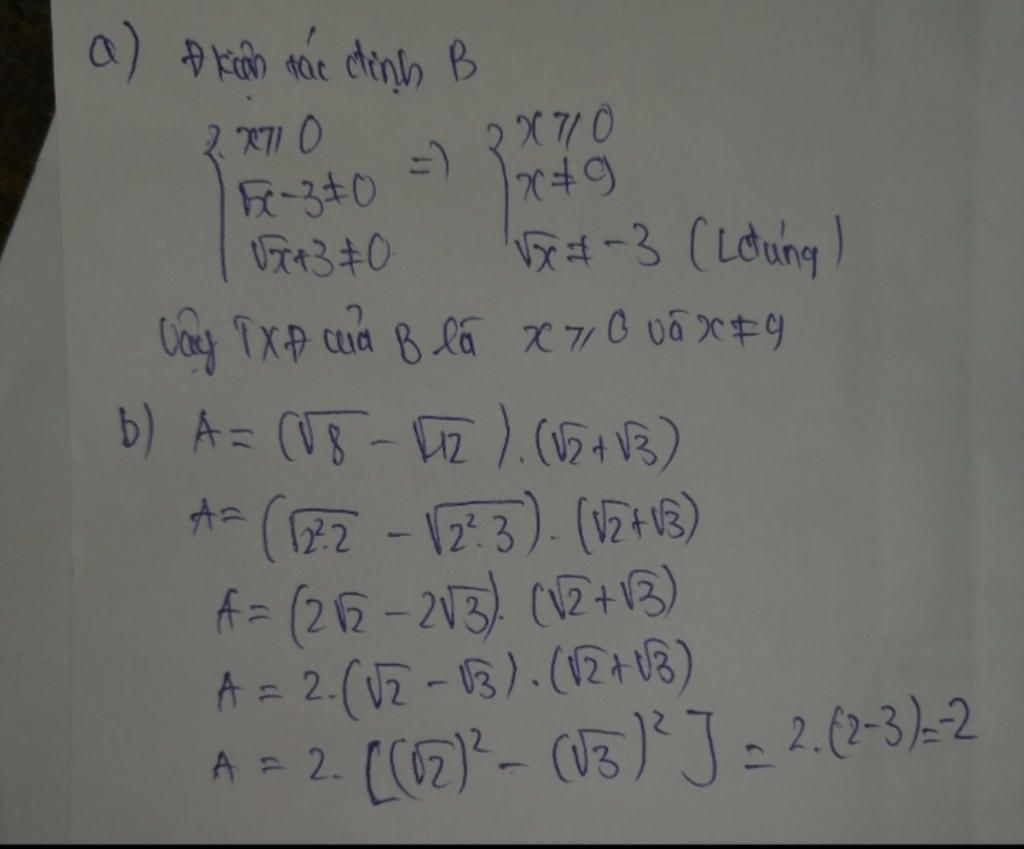 a) Đkiện xác định B
{ x ≥ 0
√x - 3 ≠ 0
√x + 3 ≠ 0
=> { x ≥ 0
x ≠ 9
√x ≠ -3 (Lđúng)
Vậy TXĐ của B là x ≥ 0 và x ≠ 9
b) A = (√8 - √12).(√2 + √3)
A = (√2².2 - √2².3).(√2 + √3)
A = (2√2 - 2√3).(√2 + √3)
A = 2.(√2 - √3).(√2 + √3)
A = 2.[(√2)² - (√3)²] = 2.(2-3) = -2